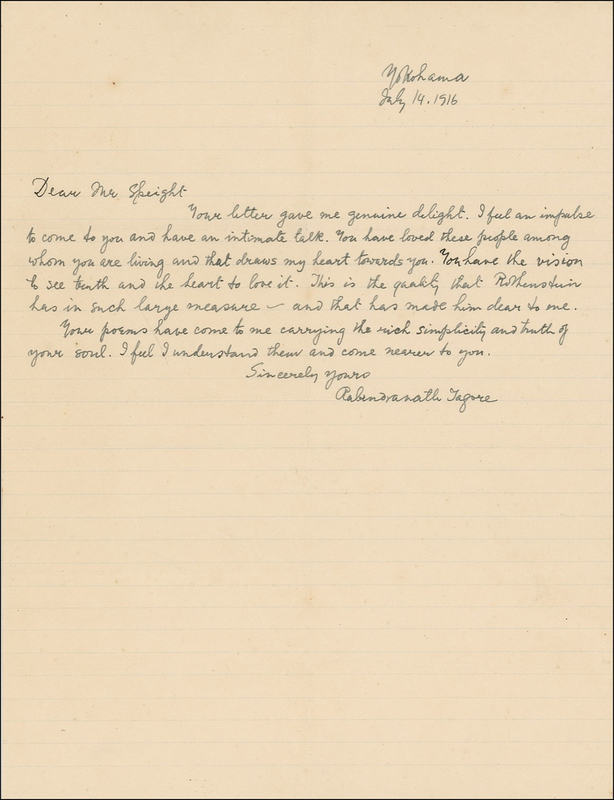 Yokohama
July 14. 1916
Dear Mr Speight
Your letter gave me genuine delight. I feel an impulse
to come to you and have an intimate talk. You have loved these people among
whom you are living and that draws my heart towards you. You have the vision
to see truth and the heart to love it. This is the quality that Rothenstein
has in such large measure – and that has made him dear to me.
Your poems have come to me carrying the rich simplicity and truth of
your soul. I feel I understand them and come nearer to you.
Sincerely yours
Rabindranath Tagore